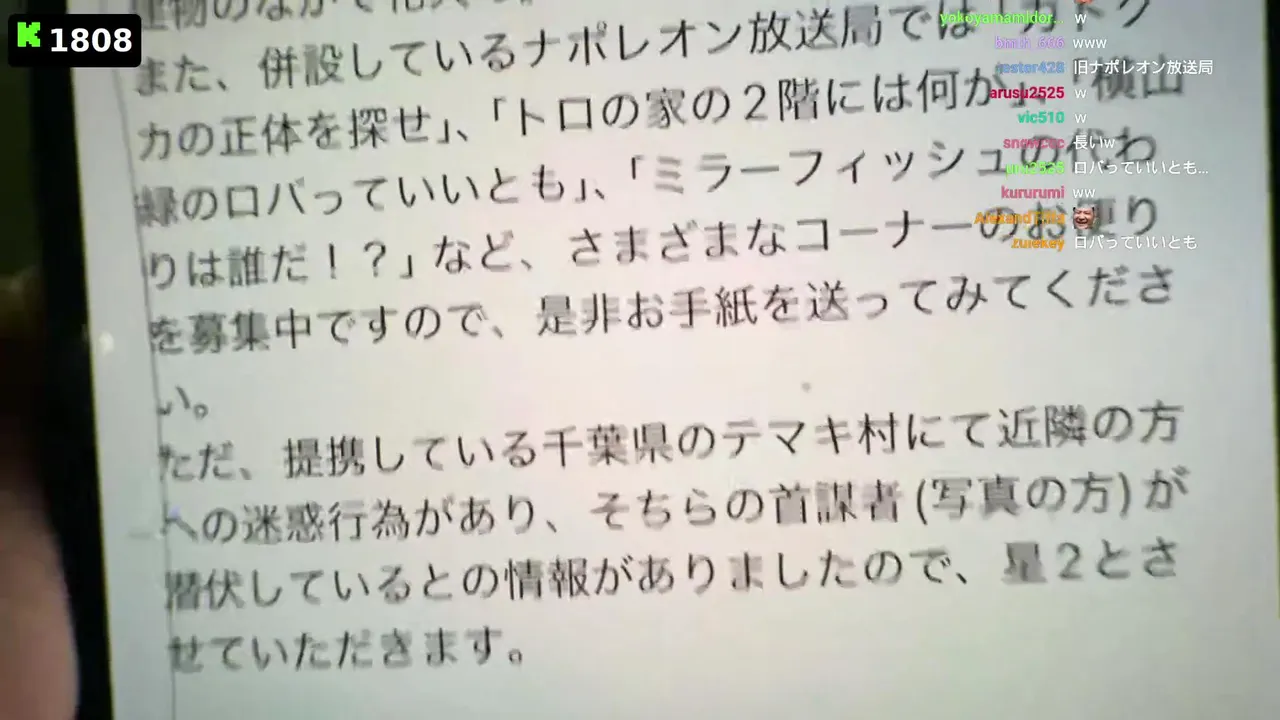 K 1808
建物のなかで
また、併設しているナポレオン放送局では「カトゥ
カの正体を探せ」、「トロの家の2階には何が」、「横山
緑のロバっていいとも」、「ミラーフィッシュの代わ
りは誰だ！？」など、さまざまなコーナーのお便り
を募集中ですので、是非お手紙を送ってみてくださ
い。
ただ、提携している千葉県のテマキ村にて近隣の方
への迷惑行為があり、そちらの首謀者(写真の方)が
潜伏しているとの情報がありましたので、星2とさ
せていただきます。
yokoyamamidor... w
www
jester428 旧ナポレオン放送局
arusu2525 w
vic510 w
長いw
ロバっていいとも...
kururumi ww
zulekey ロバっていいとも